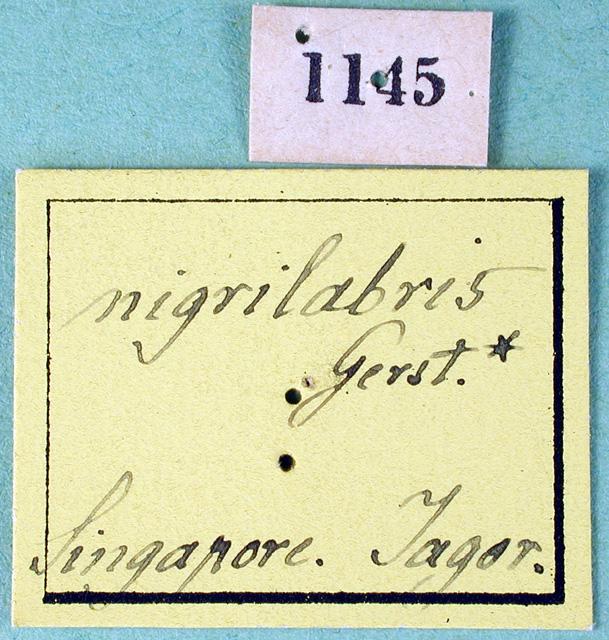 1145
nigrilabris
Gerst.*
Singapore. Jagor.